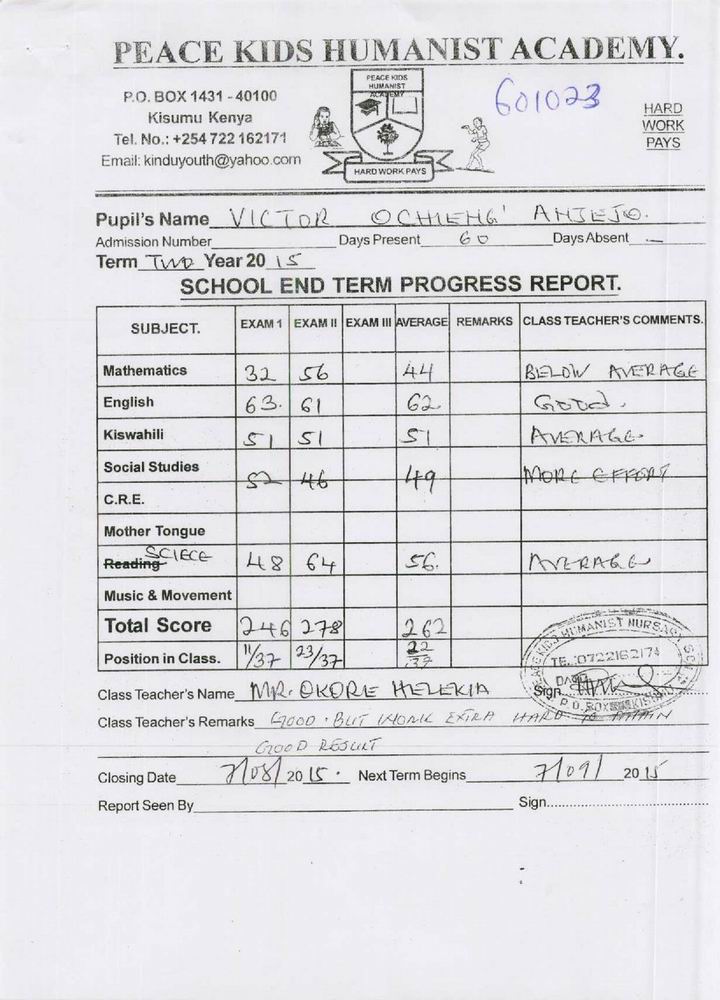 PEACE KIDS HUMANIST ACADEMY.
P.O. BOX 1431 - 40100
Kisumu Kenya
Tel. No.: +254 722 162171
Email: kinduyouth@yahoo.com
PEACE KIDS
HUMANIST
ACADEMY
HARD WORK PAYS
601023
HARD
WORK
PAYS
Pupil's Name VICTOR OCHIENG' AHJEJO.
Admission Number Days Present 60 Days Absent —
Term TWO Year 2015
SCHOOL END TERM PROGRESS REPORT.
SUBJECT. EXAM 1 EXAM II EXAM III AVERAGE REMARKS CLASS TEACHER'S COMMENTS.
Mathematics 32 56 44 BELOW AVERAGE
English 63. 61 62. GOOD.
Kiswahili 51 51 51 AVERAGE.
Social Studies 52 46 49 MORE EFFORT
C.R.E.
Mother Tongue
Reading SCIECE 48 64 56. AVERAGE
Music & Movement
Total Score 246 278 262
Position in Class. 11/37 23/37 22/37
Class Teacher's Name MR. OKORE HELEKIA Sign.
Class Teacher's Remarks GOOD. BUT WORK EXTRA HARD TO ATTAIN
GOOD RESULT
Closing Date 7/08/2015. Next Term Begins 7/09/2015
Report Seen By Sign